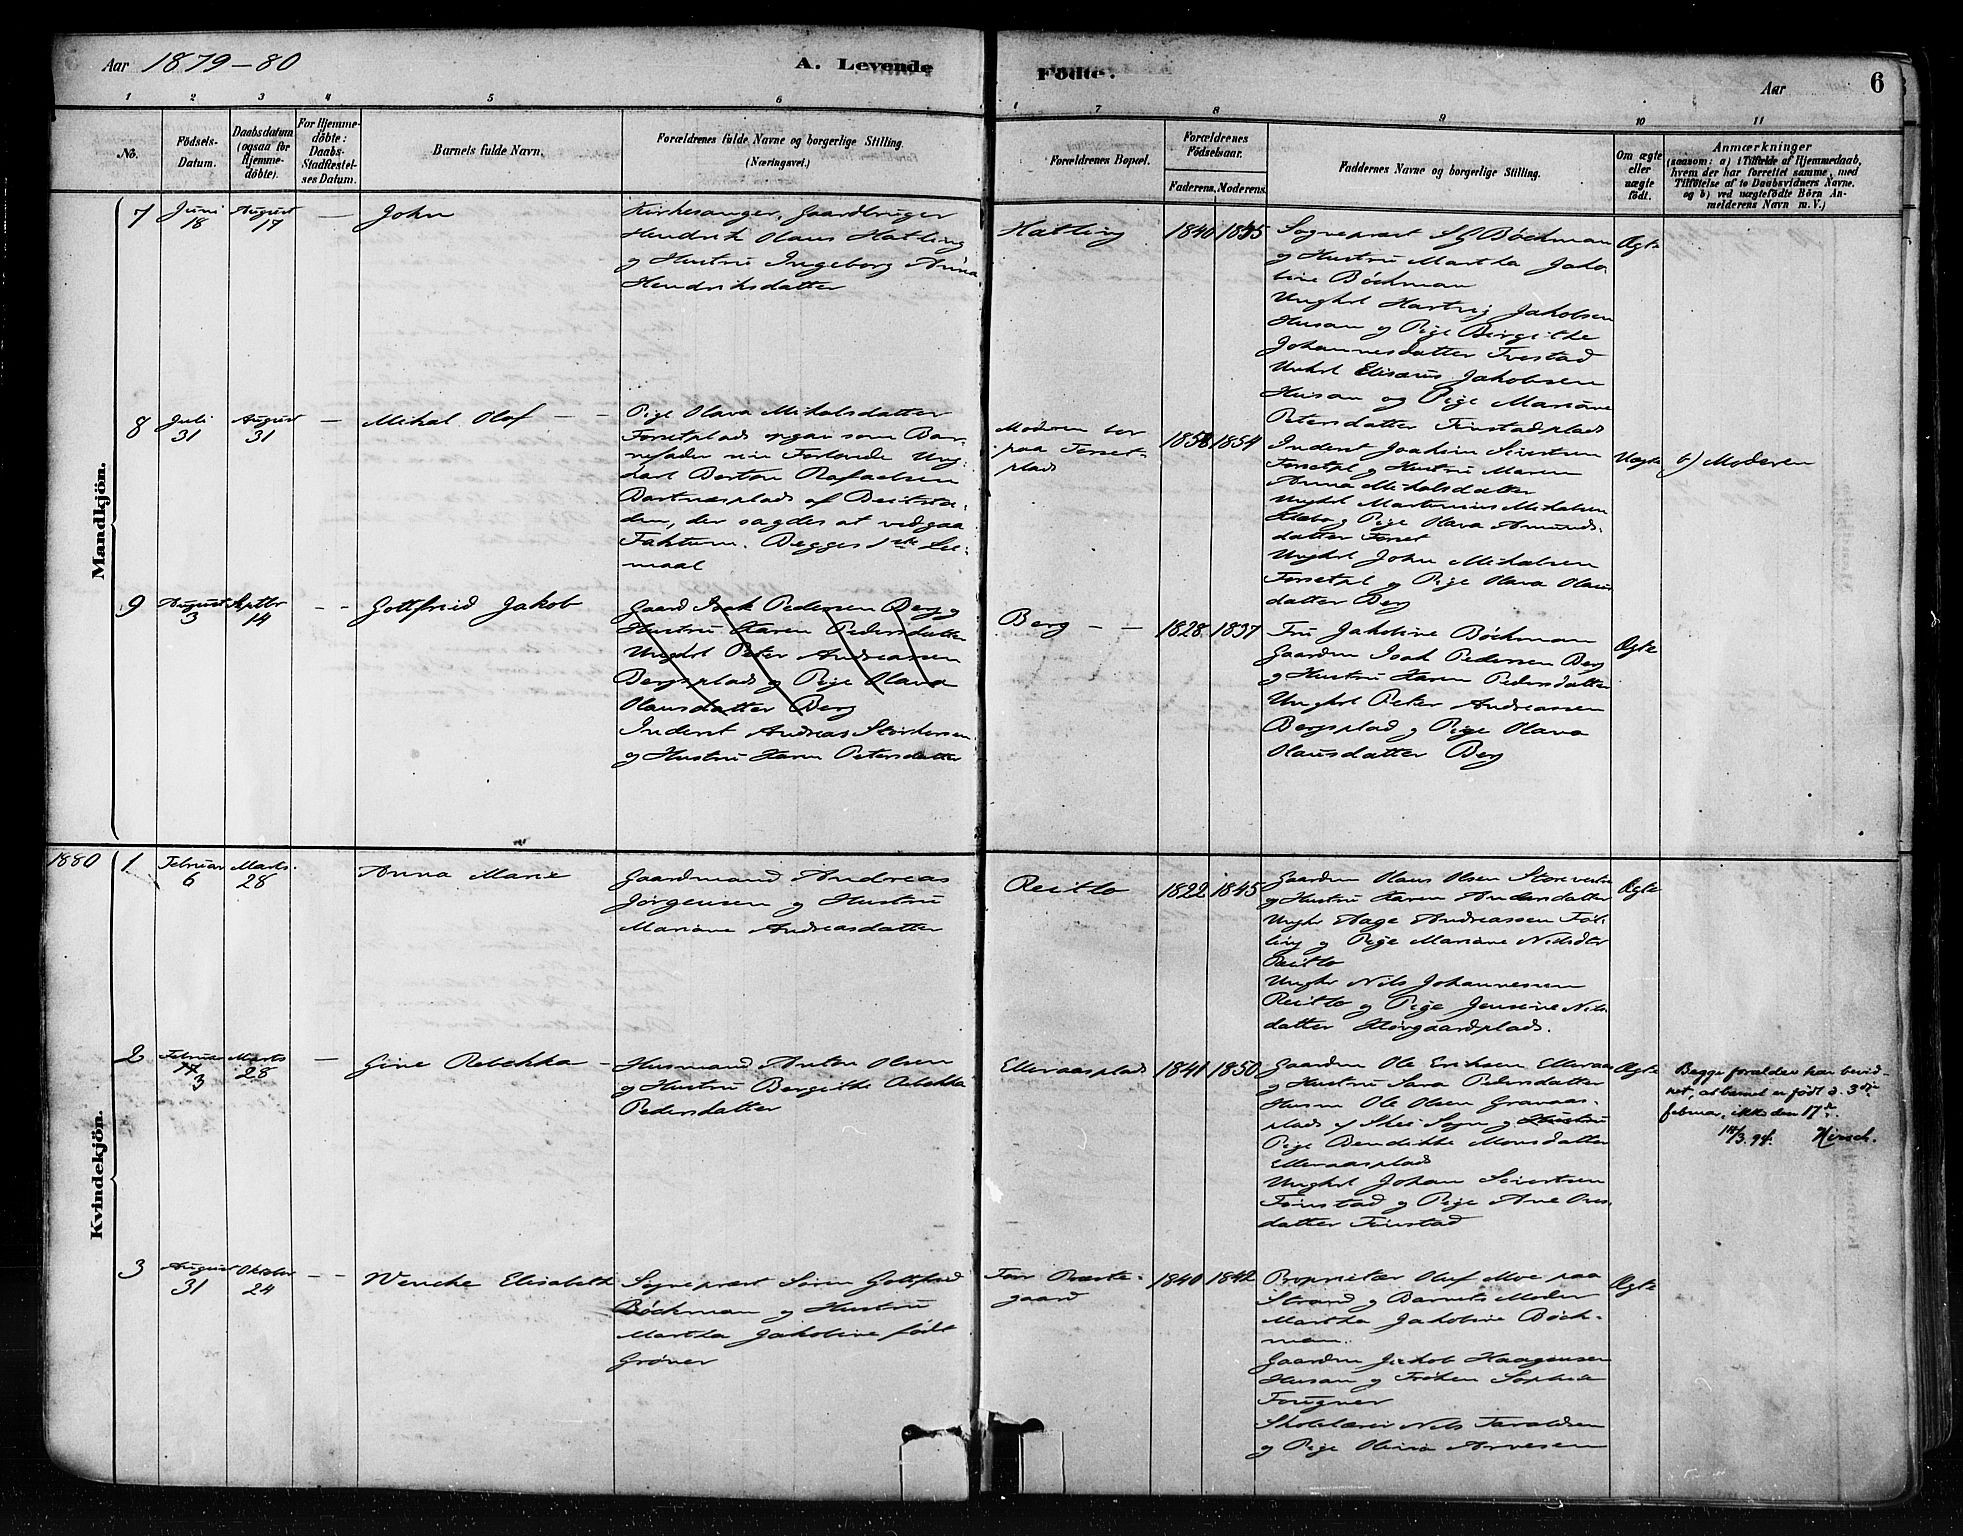 Aar 1879-80
A. Levende
Fødte.
Aar
6
1 2 3 4 5 6 7 8 9 10 11
No.
Fødsels-
Datum.
Daabsdatum
(ogsaa for
Hjemme-
døbte).
For Hjemme-
døbte:
Daabs-
Stadfæstel-
ses Datum.
Barnets fulde Navn.
Forældrenes fulde Navne og borgerlige Stilling.
(Næringsvei.)
Forældrenes Bopæl.
Forældrenes
Fødselsaar.
Faderens. Moderens.
Faddernes Navne og borgerlige Stilling.
Om ægte
eller
uægte
født.
Anmærkninger
(saasom: a) i Tilfælde af Hjemmedaab,
hvem der har forrettet samme, med
Tilføielse af to Daabsvidners Navne,
og b) ved uægtefødte Børn An-
melderens Navn m. V.)
Mandkjön.
7
Juni
18
August
17
—
John
Kirkesanger, Gaardbruger
Hendrik Olaus Hatling
og Hustru Ingeborg Anna
Hendriksdatter
Hatling
1840 1845
Sognepræst S G Böckman
og Hustru Martha Jako
bine Böckman
Unghrl Hartvig Jakobsen
Husan og Pige Birgithe
Johannesdatter Tvestad
Unkrl Elisæus Jakobsen
Husan og Pige Mariane
Petersdatter Finstadplads
Ægte
8
Juli
31
August
31
—
Mikal Olof — —
Pige Olava Mikalsdatter
Forsetplads opgav som Bar-
nefader sin Forlovede Ung-
karl Berton Rafaelsen
Bartnæsplads af Beitsta-
den, der sagdes at vedgaa
Faktum. Begges 1ste Lei-
maal
Moderen bor
paa Forset-
plads
1858 1854
Inderst Joakim Sivertsen
Forsetpl og Hustru Maren
Anna Mikalsdatter
Unghrl Martinius Mikalsen
og Pige Olava Amunds-
datter Forset
Unghrl John Mikalsen
Forsetpl og Pige Olava Olaus
datter Berg
Uægte
b) Moderen
9
August
3
Septbr
14
— —
Gottfried Jakob
Gaard Isak Pedersen Berg og
Hustru Karen Pedersdatter
Unghrl Peter Andreassen
Bergsplads og Pige Olava
Olausdatter Berg
Inderst Andreas Størkersen
og Hustru Karen Petersdatter
Berg — —
1828 1837
Fru Jakobine Böckman
Gaardm Isak Pedersen Berg
og Hustru Karen Pedersdatter
Unghrl Peter Andreassen
Bergsplad og Pige Olava
Olausdatter Berg
Ægte
1880
Kvindekjön.
1
Februar
6
Marts
28
Anna Marie
Gaardmand Andreas
Jørgensen og Hustru
Mariane Andreasdatter
Reitlo
1822 1845
Gaardm Olaus Olsen Størevestre
og Hustru Karen Andersdatter
Unghr Aage Andreassen Føl-
ling og Pige Mariane Nilsdtr
Reitlo
Unghr Nils Johannessen
Reitlo og Pige Jensine Nils
datter Klövgaardplads.
Ægte
2
Februar
17
3
Marts
28
—
Gine Rebekka —
Husmand Anton Olsen
og Hustru Bergithe Rebekka
Pedersdatter
Elleraasplads
1841 1850
Gaardm Ole Eriksen Elleraas
og Hustru Sara Pedersdatter
Husm Ole Olsen Gravaas-
plads af Stei Sogn og Hustru
Pige Bendikke Monsdatter
Elleraasplad
Unghrl Johan Sivertsen
Finstad og Pige Ane Ons
datter Finstad
Ægte
Begge forældre har bevid-
net, at barnet er født d. 3die
februar, ikke den 17de.
14/3.94. Hirsch.
3
August
31
Oktober
24
— —
Wencke Elisabeth
Sognepræst Søren Gottfried
Böckman og Hustru
Martha Jakobine født
Grøner
For Præste-
gaard
1840 1842
Proprietær Oluf Moe paa
Strand og Barnets Moder
Martha Jakobine Böck-
man.
Gaardm Jakob Haagensen
Husan og Frøken Sophie
Fougner
Skolelærer Nils Taraldsen
og Pige Olina Arnesen
Ægte